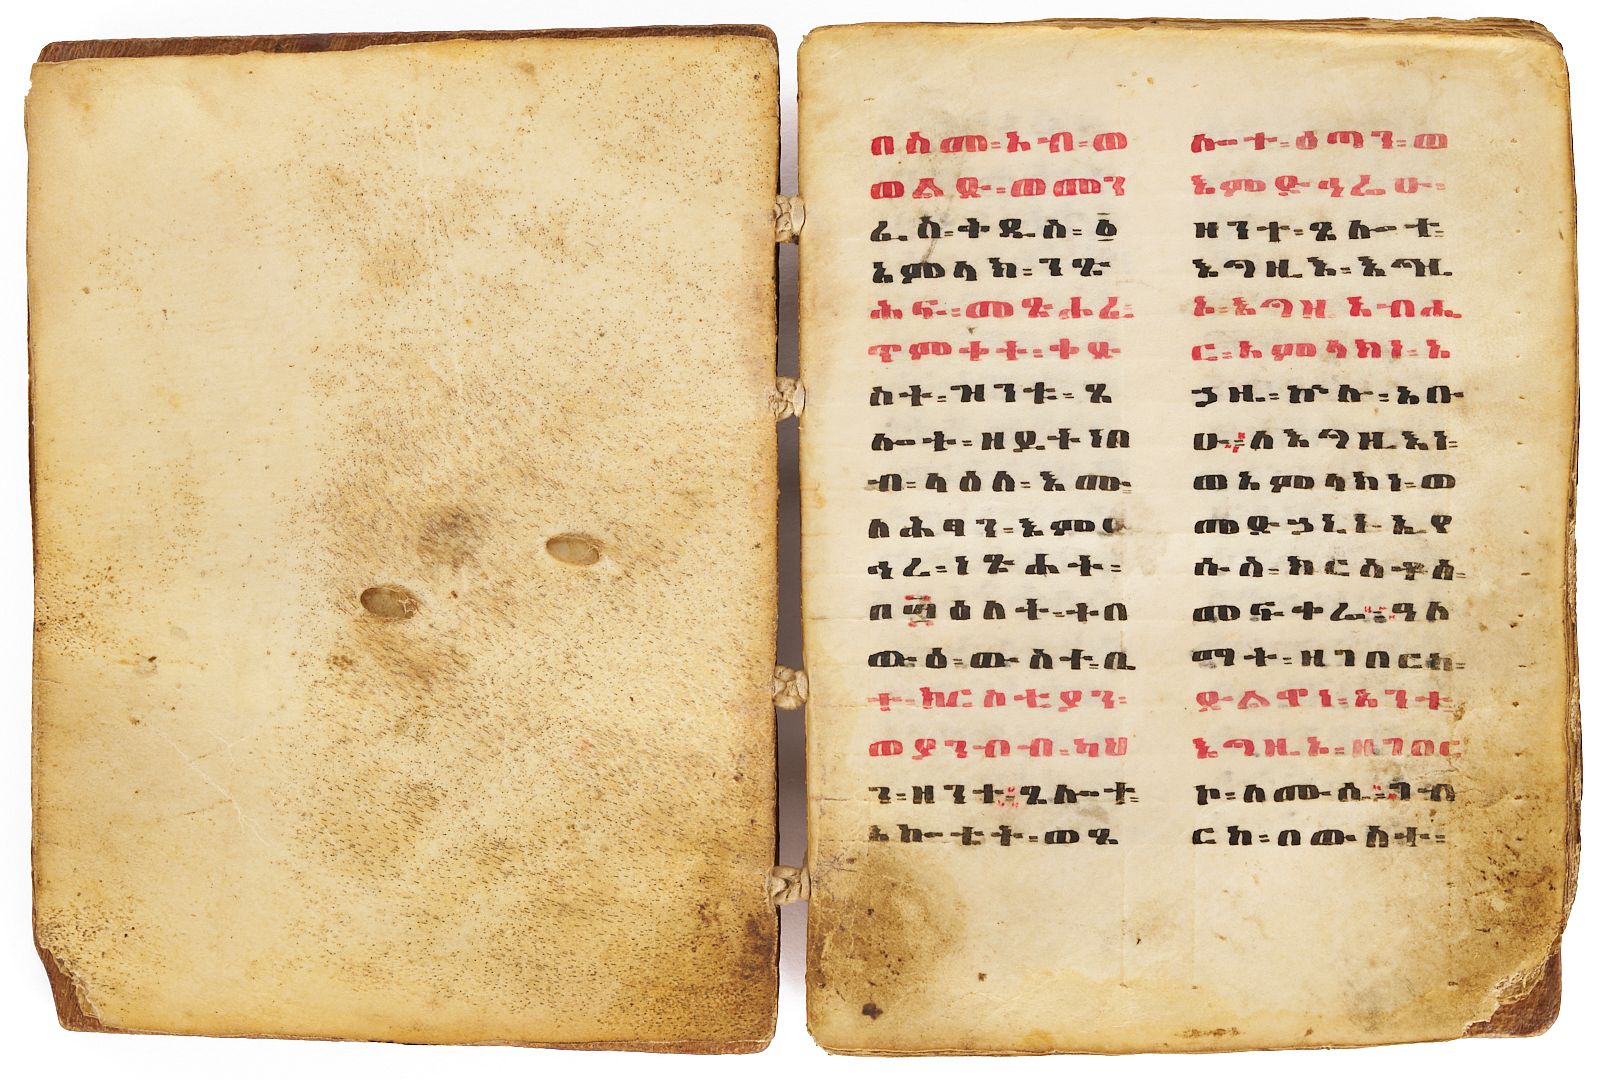 በስመ፡አብ፡ወ
ወልድ፡ወመን
ፈስ፡ቅዱስ፡፩
አምላክ፡ንጽ
ሕፍ፡መጽሐፈ፡
ጥምቀት፡ቀድ
ስተ፡ዝንቱ፡ጸ
ሎት፡ዘይትነበ
ብ፡ላዕለ፡እሙ፡
ለሕፃን፡እምድ
ኅረ፡ነጽሐት፡
በ፵ዕለት፡ተበ
ውዕ፡ውስተ፡ቤ
ተ፡ክርስቲያን፡
ወያንብብ፡ካህ
ን፡ዘንተ፡ጸሎተ፡
አኰቴት፡ወጸ
ሎተ፡ዕጣን፡ወ
እምድኅሬሁ፡
ዘንተ፡ጸሎተ፡
እግዚእ፡እግዚ
አ፡እግዚአብሔ
ር፡አምላክነ፡አ
ኃዜ፡ኵሉ፡አቡ
ሁ፡ለእግዚእነ፡
ወአምላክነ፡ወ
መድኃኒነ፡ኢየ
ሱስ፡ክርስቶስ፡
መፍተሬ፡ዓለ
ማት፡ዘገበርከ፡
ድልዋነ፡አንተ፡
እግዚኦ፡ዘገበር
ኮ፡ለሙሴ፡ገብ
ርከ፡በውስተ፡